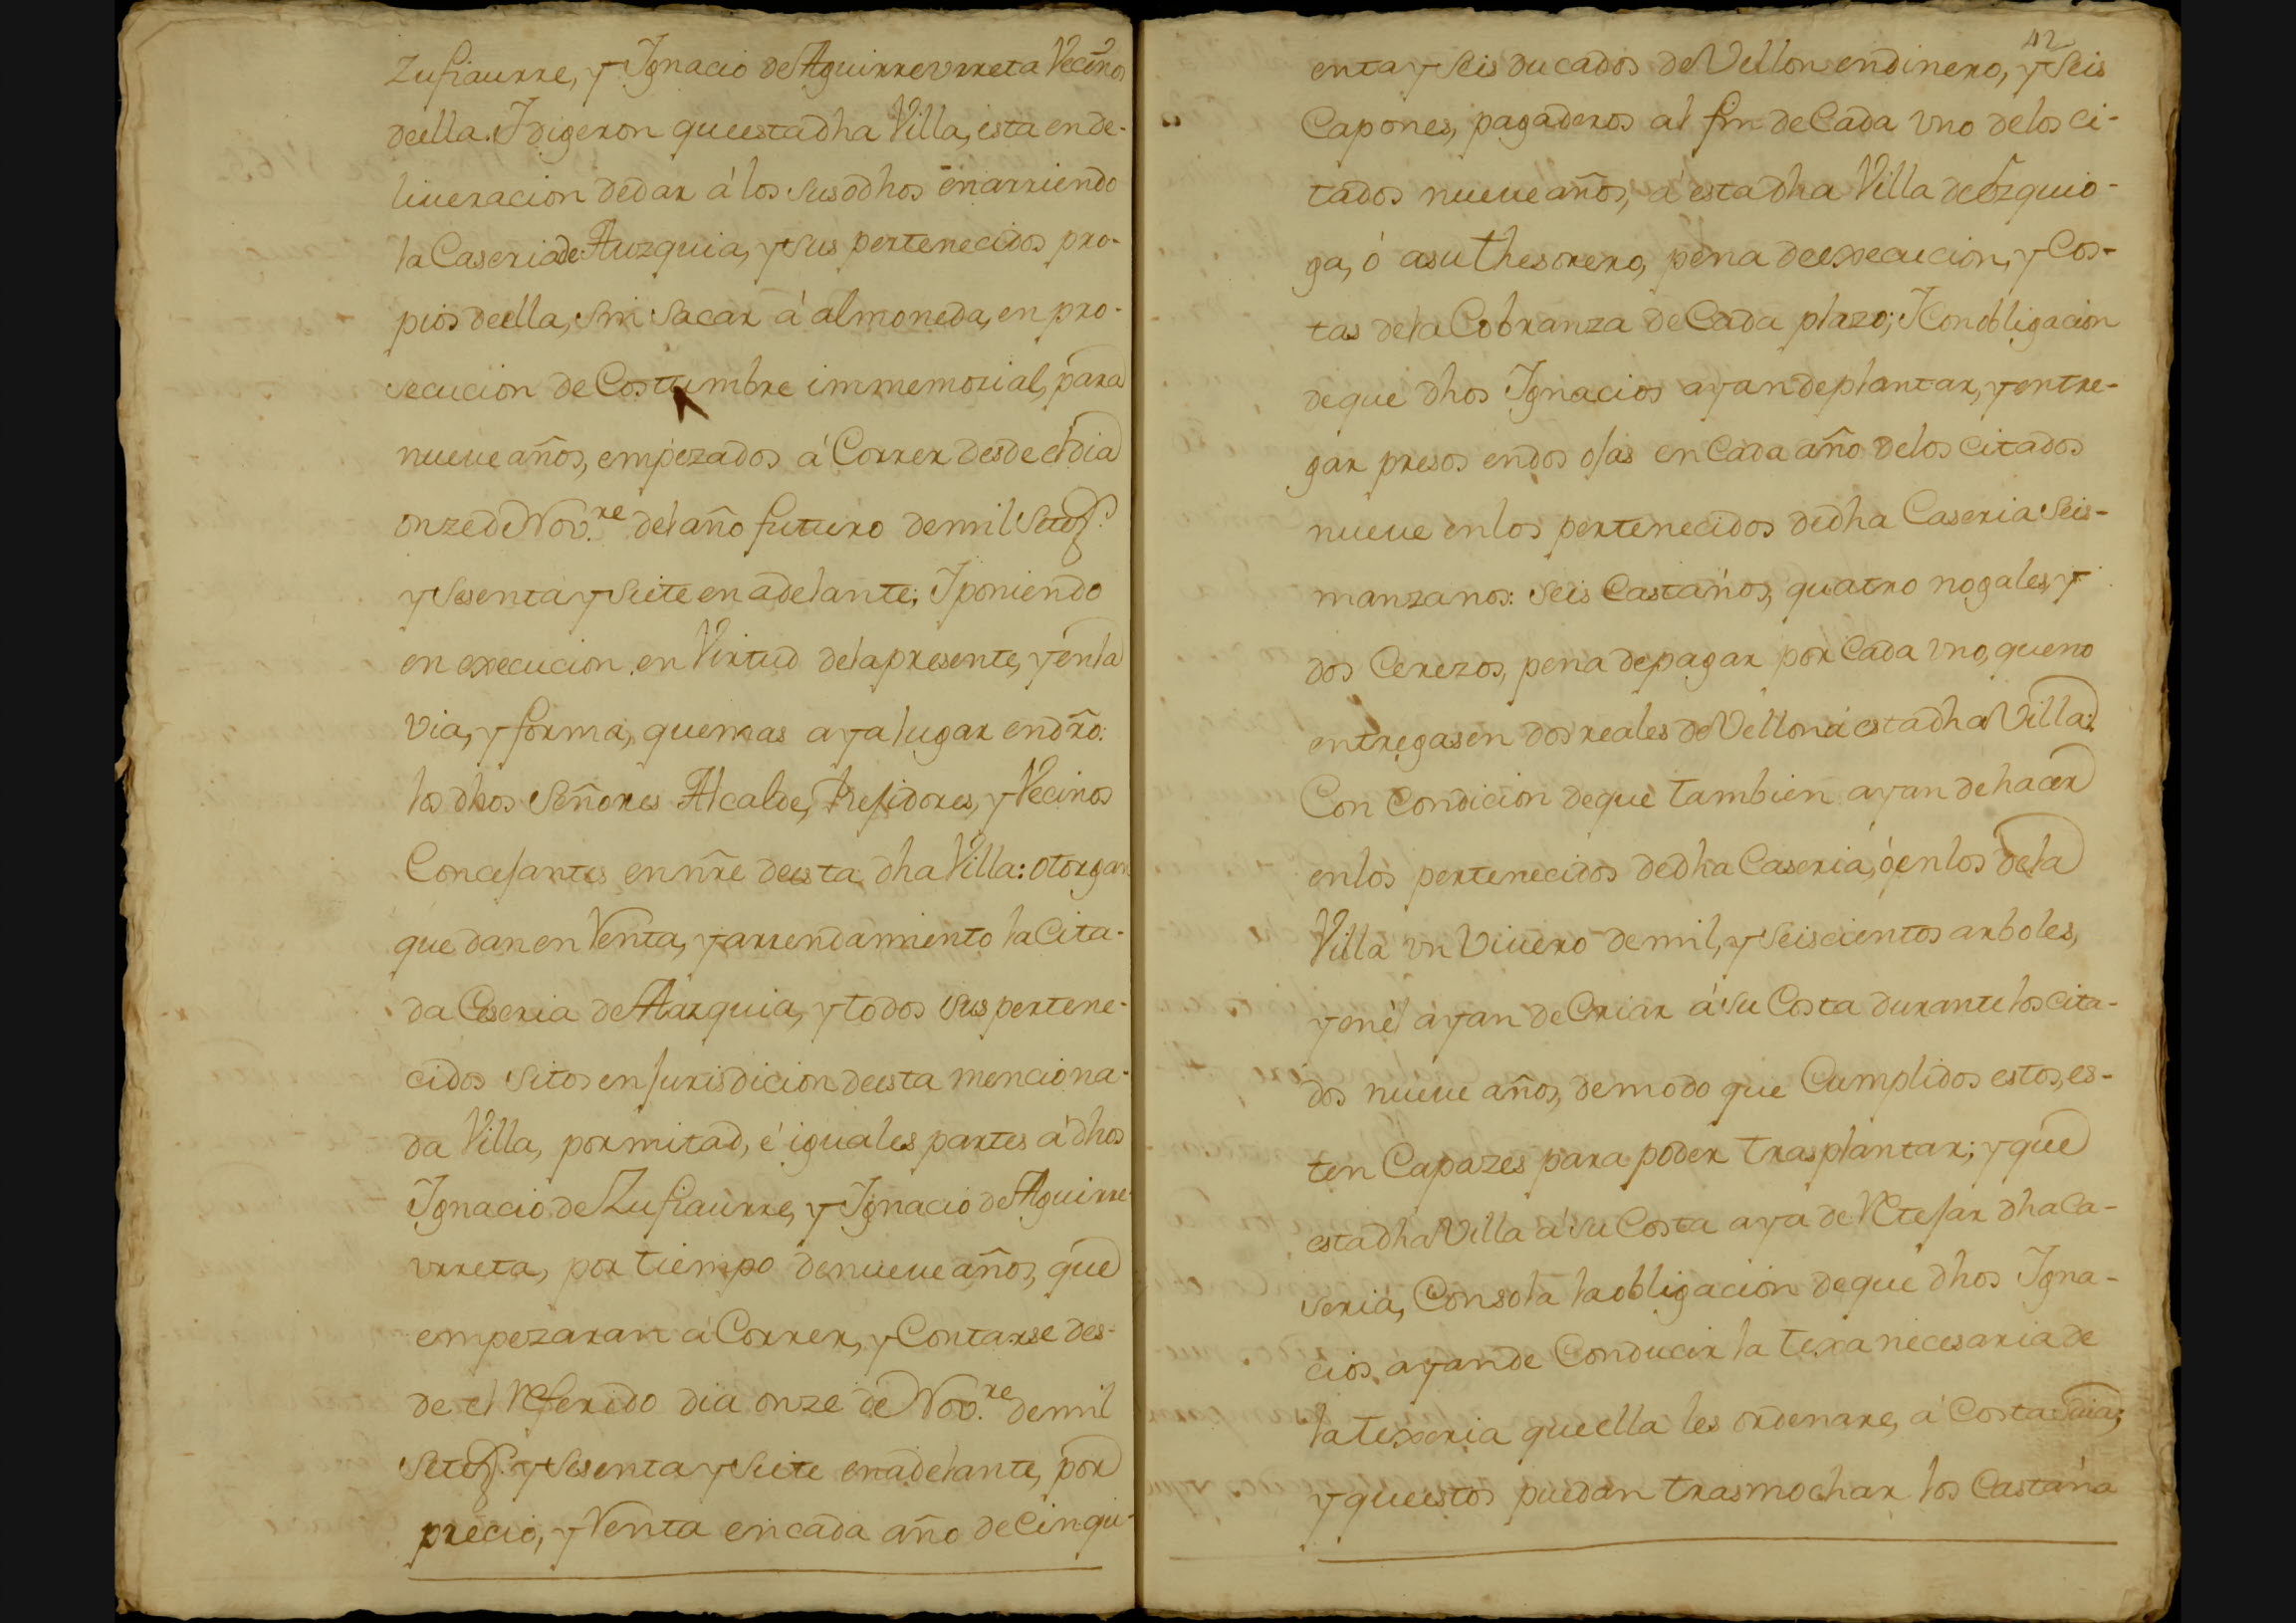 Zufiaurre, y Ignacio de Aguirreurreta Vecinos
deella. I digeron que esta dha Villa, esta en de-
liueracion de dar á los susodhos en arriendo
la Caseria de Auzquia, y sus pertenecidos pro-
pios de ella, sin sacar á almoneda, en pro-
secucion de Costumbre immemorial, para
nueue años, empezados á Correr desde el dia
onze de Nov.re del año futuro de mil Setes.
y Sesenta y Siete en adelante; I poniendo
en execucion en Virtud de la presente, y en la
via, y forma, que mas aya lugar en dro:
los dhos Señores Alcalde, Rejidores, y Vecinos
Concejantes en nre de esta dha Villa: otorgan
que dan en Renta, y arrendamiento la Cita-
da Caseria de Auzquia, y todos sus pertene-
cidos sitos en jurisdicion de esta menciona-
da Villa, por mitad, é iguales partes á dhos
Ignacio de Zufiaurre, y Ignacio de Aguirre-
urreta, por tiempo de nueue años, que
empezaran á Correr, y Contarse des-
de el Referido dia onze de Nov.re de mil
Setes. y Sesenta y Siete en adelante, por
precio, y Renta en cada año de Cinqu-
42
enta y Seis ducados de Vellon en dinero, y Seis
Capones, pagaderos al fin de Cada vno de los ci-
tados nueue años, á esta dha Villa de Ezquio-
ga, ó a su thesorero, pena de execucion, y Cos-
tas de la Cobranza de Cada plazo; I Con obligacion
de que dhos Ignacios ayan de plantar, y entre-
gar presos en dos ojas en Cada año de los citados
nueue en los pertenecidos de dha Caseria Seis-
manzanos: Seis Castaños, quatro nogales, y
dos Cerezos, pena de pagar por Cada vno, que no
entregasen dos reales de Vellon á esta dha Villa:
Con Condicion de que tambien ayan de hacer
en los pertenecidos de dha Caseria, ó en los de la
Villa vn Viuero de mil, y Seiscientos arboles,
y en él ayan de Criar á su Costa durante los cita-
dos nueue años, de modo que Cumplidos estos, es-
ten Capazes para poder trasplantar; y que
esta dha Villa á su Costa aya de Retejar dha Ca-
seria, Con sola la obligacion de que dhos Igna-
cios ayan de Conducir la texa necesaria de
la texeria que ella les ordenare, á Costa suia;
y que estos puedan trasmochar los Castaña